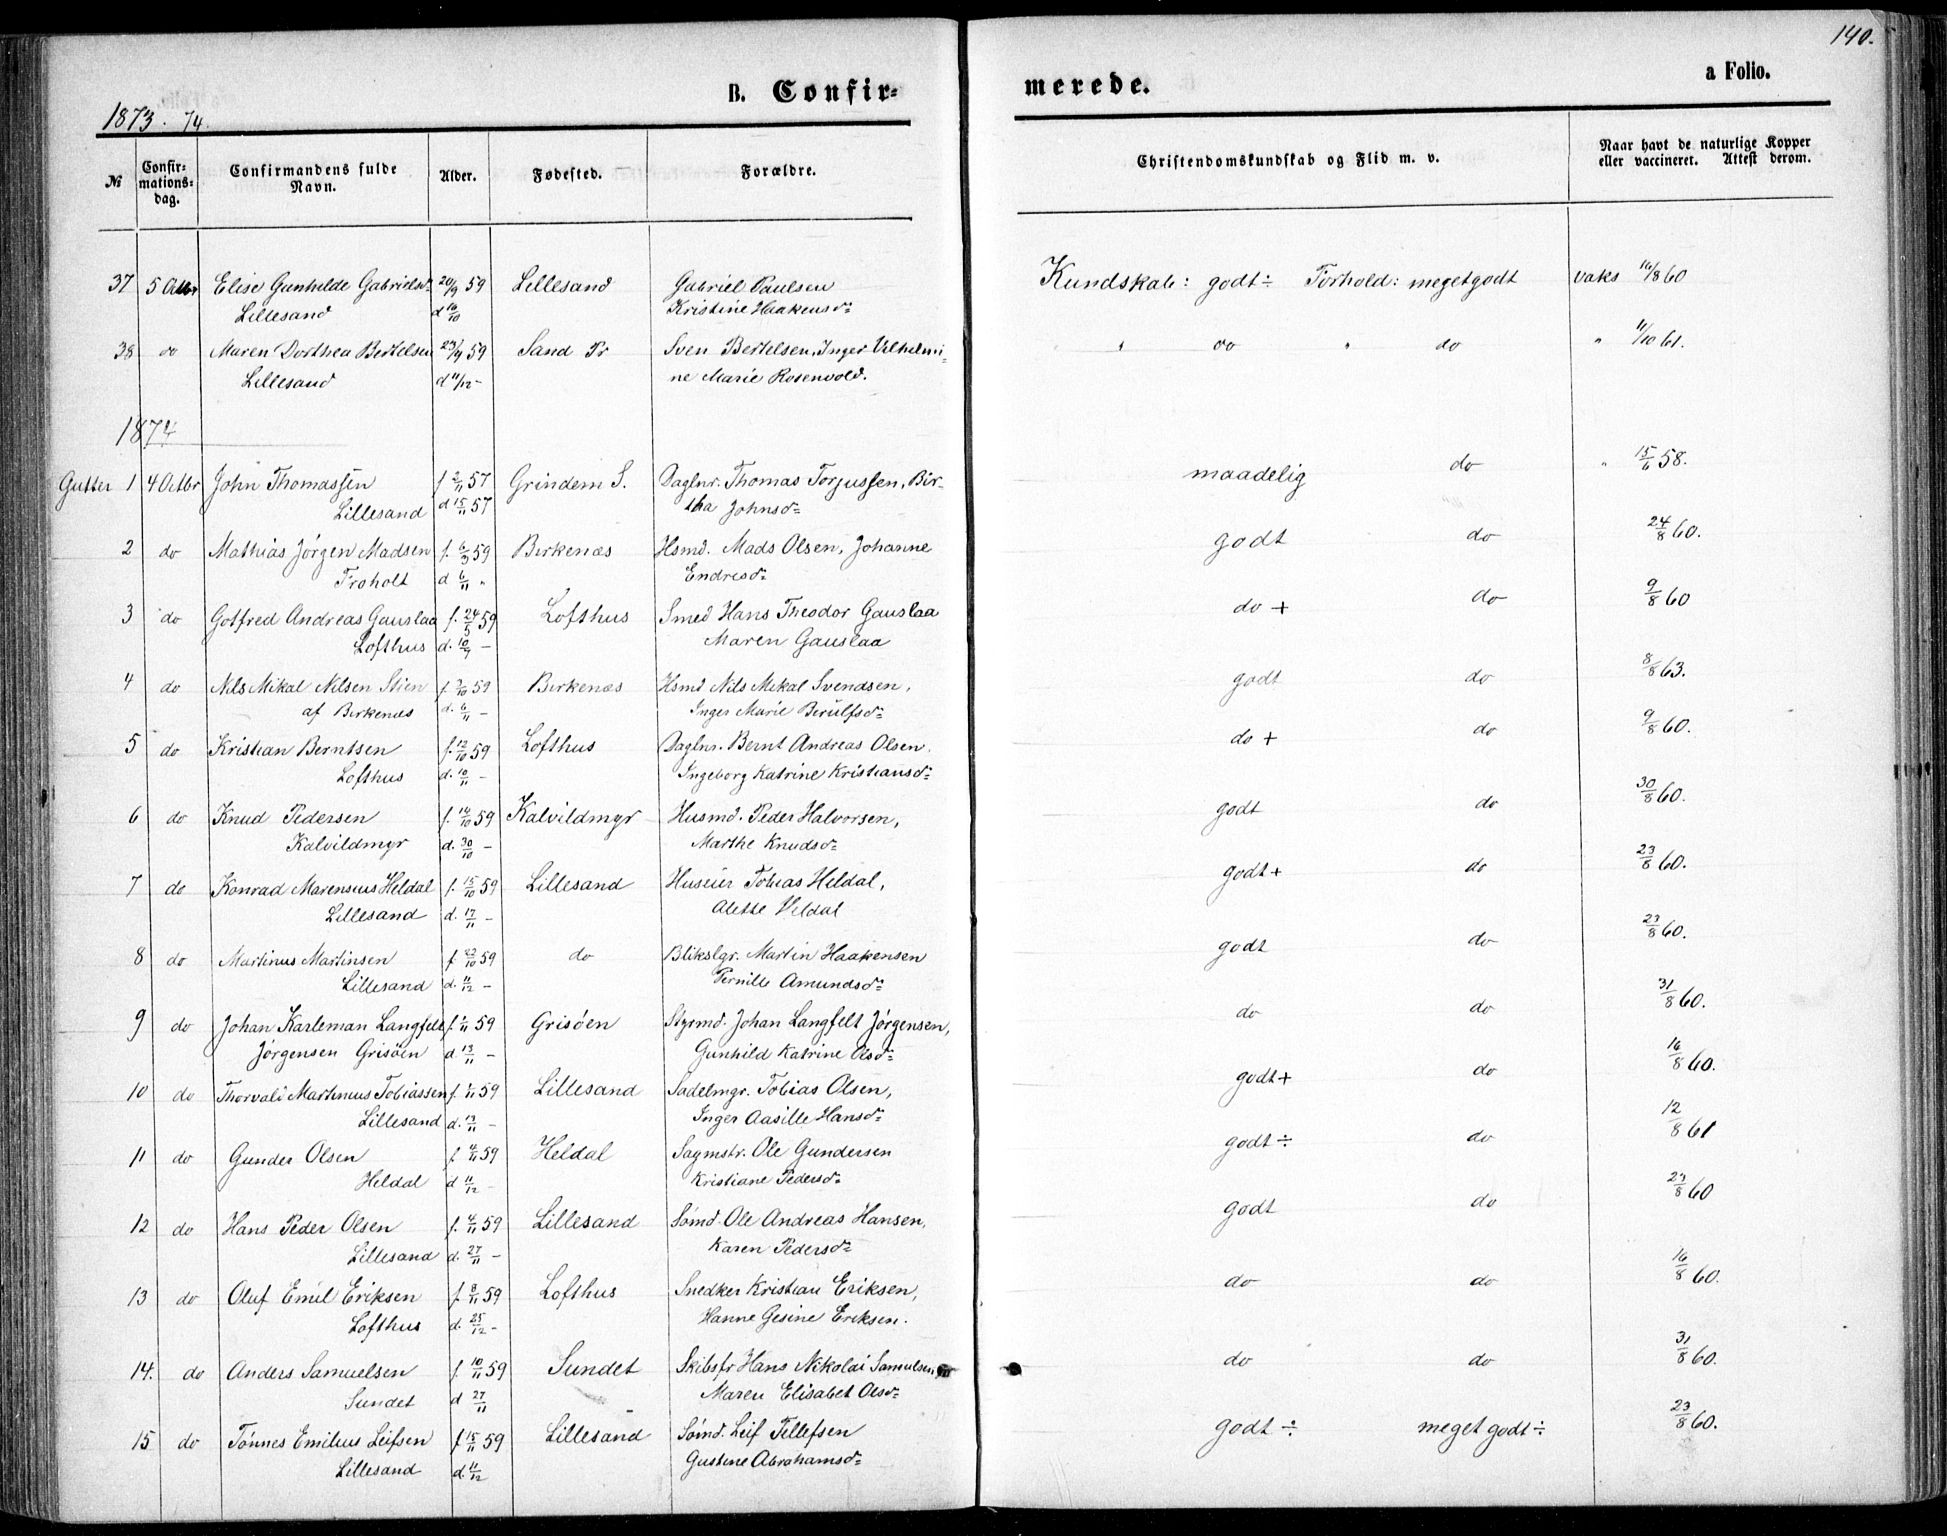 140.
B. Confir- merede. a Folio.
1873. 74.
№ Confirmations-dag. Confirmandens fulde Navn. Alder. Fødested. Forældre. Christendomskundskab og Flid m. v. Naar havt de naturlige Kopper eller vaccineret. Attest derom.
37 5 Octbr Elise Gunhilde Gabrielsd. 20/9 59 Lillesand Gabriel Paulsen Kundskab: godt ÷ Forhold: megetgodt vaks 16/8 60
Lillesand d 16/10 Kristine Haakensd.
38 do Maren Dorthea Bertelsen 23/9 59 Sand Pr Sven Bertelsen, Inger Vilhelmi- " do " do " 11/10 61.
Lillesand d 11/12 - ne Marie Rosenvold.
1874
Gutter 1 4 Octbr John Thomassen f 2/11 57 Grindem S. Daglnr. Thomas Torjussen, Bir- maadelig do " 15/6 58.
Lillesand d 15/11 57 tha Johnsd.
2 do Mathias Jørgen Madsen f. 6/9 59 Birkenæs Hsmd. Mads Olsen, Johanne godt do 24/8 60.
Troholt d 6/11 " Endresd.
3 do Gotfred Andreas Gauslaa f. 24/5 59 Lofthus Smed Hans Theodor Gauslaa do + do 9/8 60
Lofthus d. 10/7 - Maren Gauslaa
4 do Nils Mikal Nilsen Stien f. 3/10 59 Birkenæs Hsmd Nils Mikal Svendsen, godt do 8/8 63.
af Birkenæs d. 6/11 - Inger Marie Berulfsd.
5 do Kristian Berntsen f. 12/10 59 Lofthus Daglnr. Bernt Andreas Olsen, do + do 9/8 60.
Lofthus d. 10/11 - Ingeborg Katrine Kristiansd.
6 do Knud Pedersen f. 14/10 59 Kalvildmyr Husmd. Peder Halvorsen, godt do 30/8 60.
Kalvildmyr d. 30/10 - Marthe Knudsd.
7 do Konrad Marensius Heldal f. 15/10 59 Lillesand Huseier Tobias Heldal, godt + do 23/8 60.
Lillesand d. 17/11 - Alette Heldal
8 do Martinus Martinsen f 23/10 59 do Blikslgr. Martin Haakensen godt do 23/8 60.
Lillesand d. 11/12 - Pernille Amundsd.
9 do Johan Karleman Langfelt f. 1/11 59 Grisöen Styrmd. Johan Langfelt Jørgensen, do do 31/8 60.
Jørgensen Grisöen d 13/11 - Gunhild Katrine Olsd.
10 do Thorvald Martinius Tobiassen f. 1/11 59 Lillesand Sadelmgr. Tobias Olsen, godt + do 16/8 60.
Lillesand d. 13/11 - Inger Aasille Hansd.
11 do Gunder Olsen f 4/11 59 Heldal Sagmstr. Ole Gundersen godt ÷ do 12/8 61
Heldal d 11/12 - Kristiane Pedersd.
12 do Hans Peder Olsen f. 4/11 59 Lillesand Sömd. Ole Andreas Hansen, godt do 23/8 60
Lillesand d. 27/11 - Karen Pedersd.
13 do Oluf Emil Eriksen f. 8/11 59 Lofthus Snedker Kristian Eriksen, do do 16/8 60.
Lofthus d. 25/12 - Hanne Gesine Eriksen.
14. do Anders Samuelsen f. 10/11 59 Sundet Skibsfr Hans Nikolai Samuelsen, do do 31/8 60.
Sundet d 27/11 Maren Elisabet Olsd.
15 do Tønnes Emilius Leifsen f 15/11 59 Lillesand Sömd. Leif Tellefsen godt ÷ meget godt ÷ 23/8 60.
Lillesand d. 11/12 Gustine Abrahamsd.